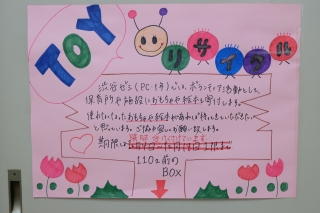 TOY
リサイクル
渋谷ゼミ(PC-1号)では、ボランティア活動として、
保育所や施設におもちゃや絵本を寄付します。
使わなくなったおもちゃや絵本があれば持ってきていただきたい
と思っています。ご協力宜しくお願い致します。
期限は
110a前の
BOX